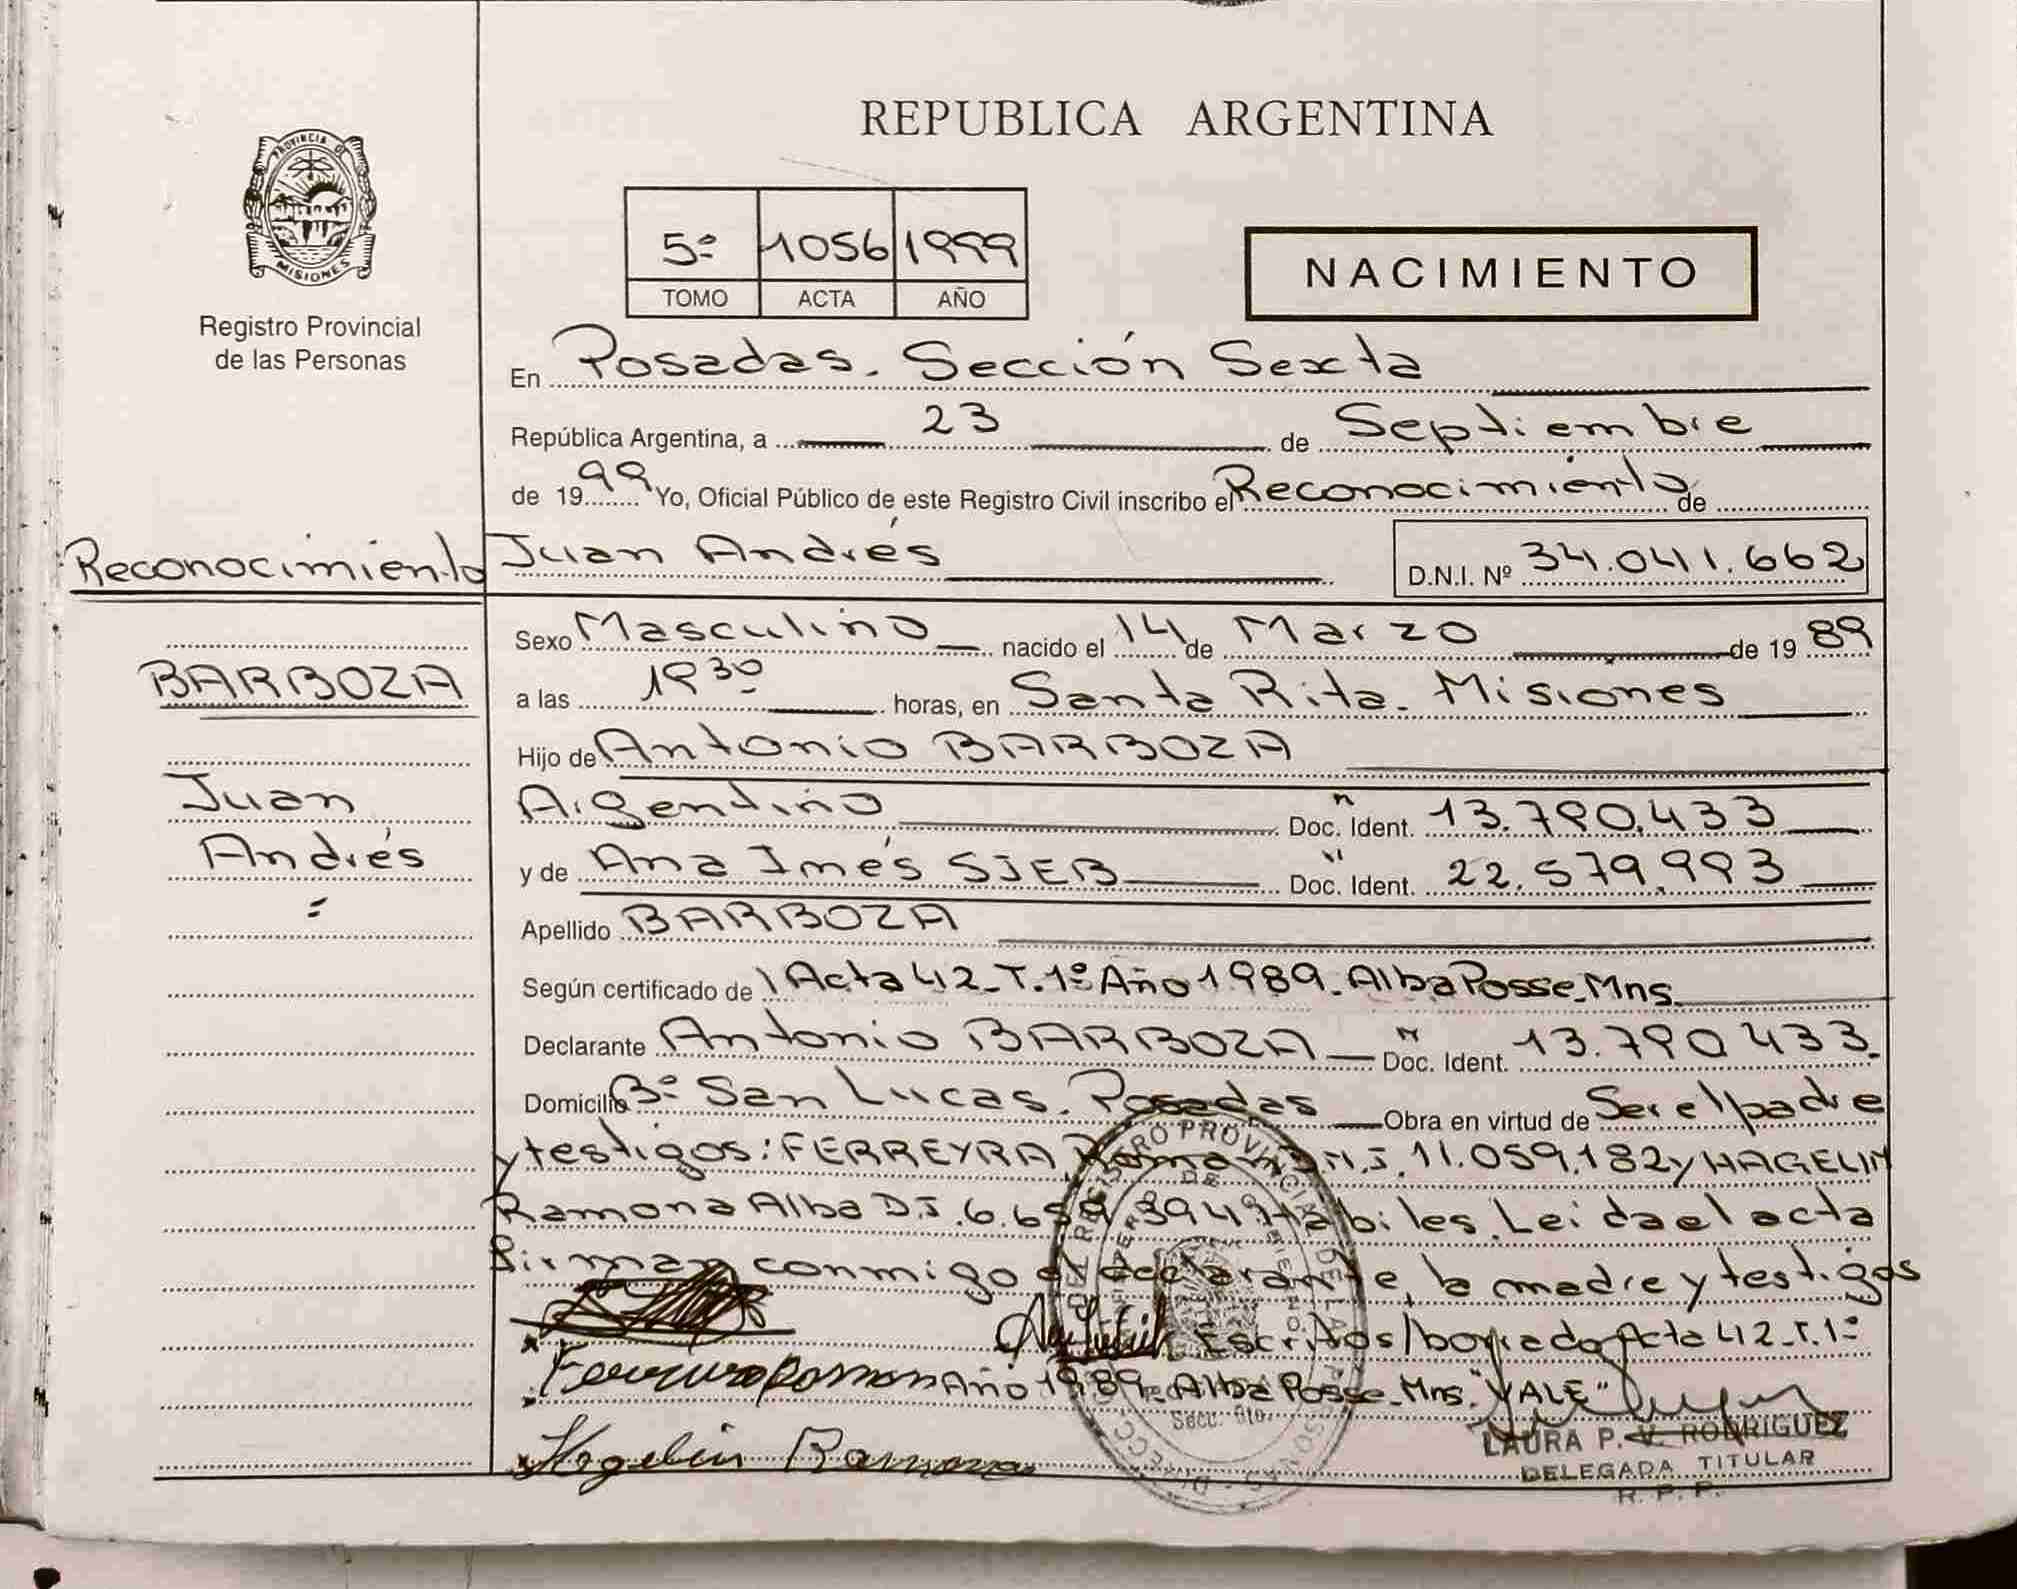 REPUBLICA ARGENTINA
PROVINCIA DE
MISIONES
Registro Provincial
de las Personas
5º 1056 1999
TOMO ACTA AÑO
NACIMIENTO
En Posadas. Sección Sexta
República Argentina, a 23 de Septiembre
de 1999 Yo, Oficial Público de este Registro Civil inscribo el Reconocimiento de
Reconocimiento
Juan Andrés D.N.I. Nº 34.041.662
BARBOZA
Juan
Andrés
=
Sexo Masculino nacido el 14 de Marzo de 1989
a las 19 30 horas, en Santa Rita. Misiones
Hijo de Antonio BARBOZA
Argentino Doc. Ident. 13.790.433
y de Ana Inés SJEB Doc. Ident. 22.579.993
Apellido BARBOZA
Según certificado de Acta 42_T.1º Año 1989. Alba Posse_Mns.
Declarante Antonio BARBOZA Doc. Ident. 13.790.433.
Domicilio Bº San Lucas. Posadas Obra en virtud de Ser el padre
y testigos: FERREYRA, Roman D.N.I. 11.059.182 y HAGELIN
Ramona Alba D.I. 6.659.394 Hábiles. Leida el acta
Firman conmigo el declarante, la madre y testigos
Escritos/borrado Acta 42_T.1º
Año 1989. Alba Posse_Mns. "VALE"
Hagelin Ramona
LAURA P. V. RODRIGUEZ
DELEGADA TITULAR
R. P. P.